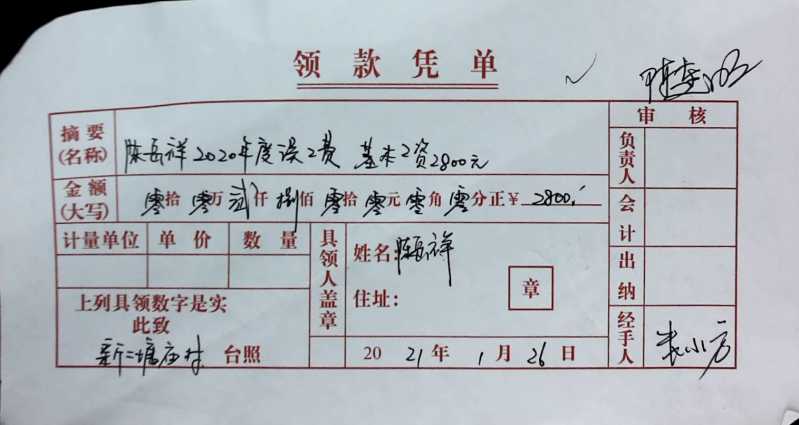 领款凭单
审核
摘要(名称) 陈岳祥2020年度误工费 基本工资2800元
负责人
金额(大写) 零拾零万贰仟捌佰零拾零元零角零分正¥2800.-
会计
计量单位 单价 数量
具领人盖章
姓名:陈岳祥
出纳
住址:
章
上列具领数字是实
此致
新二塘庙村 台照
2021年1月26日
经手人